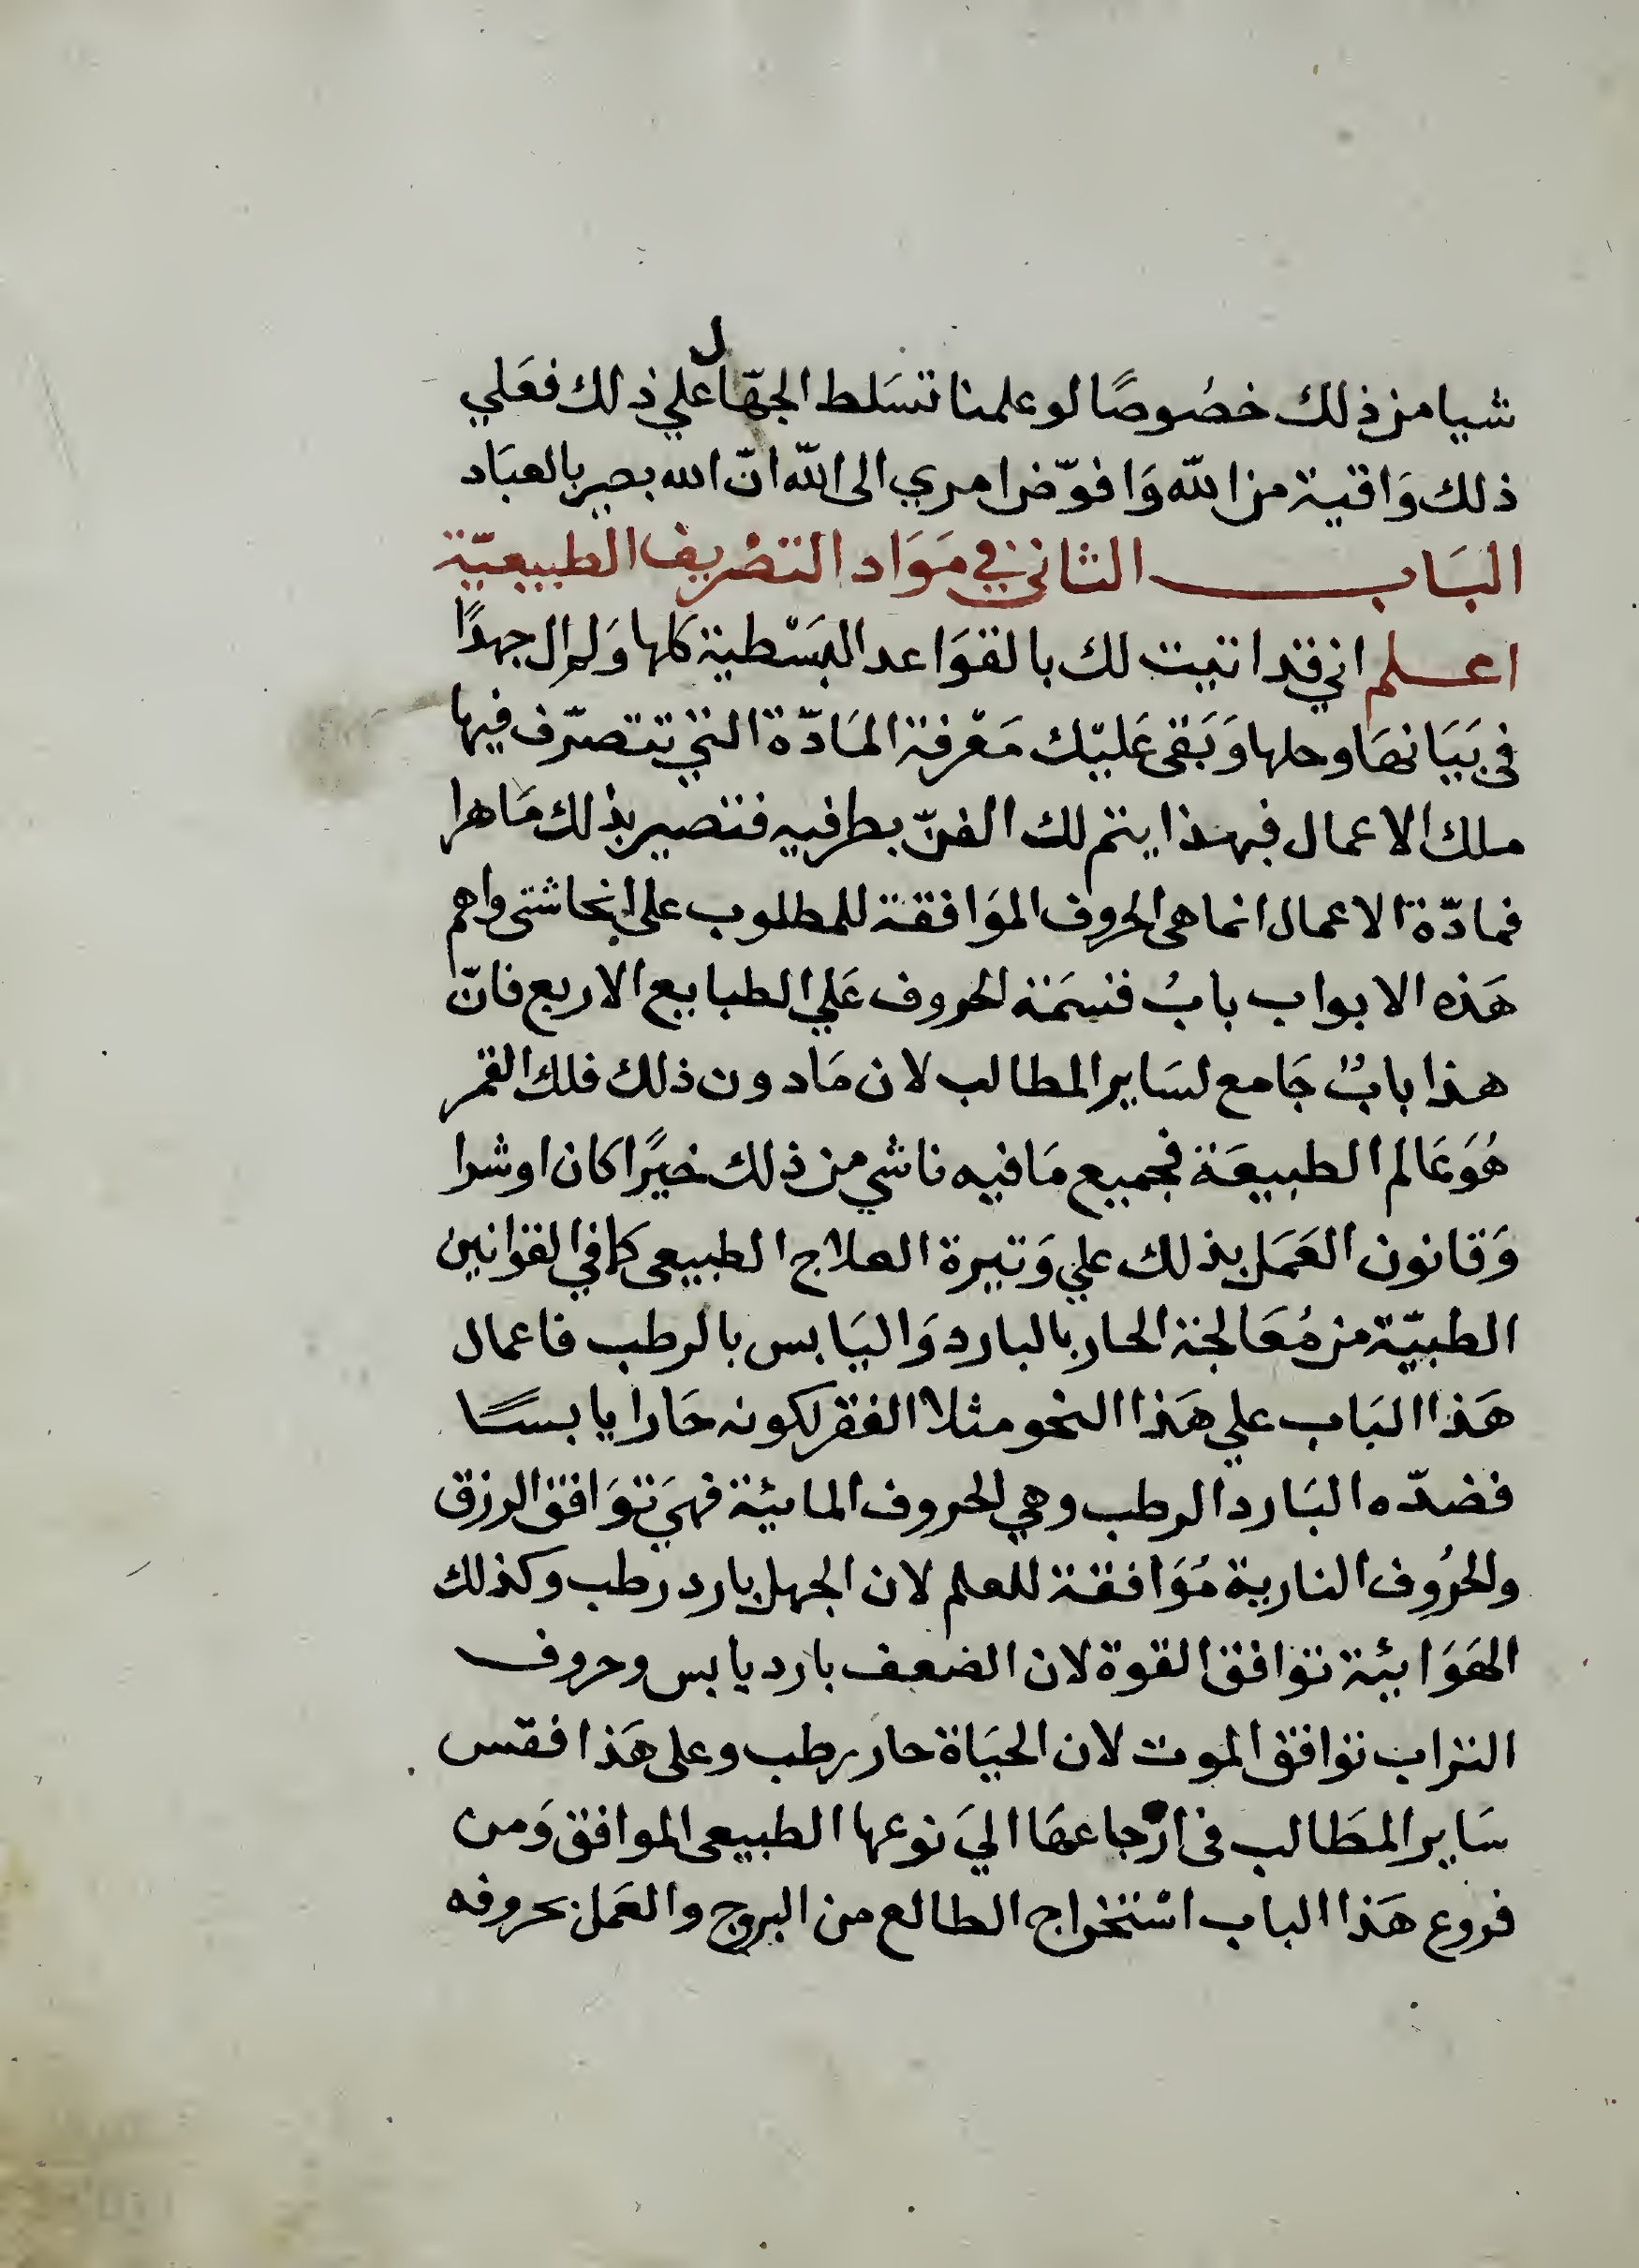 شيا من ذلك خصُوصًا لو علمنا تسَلط الجهّال علي ذلك فعَلي
ذلك وَاقية من اللّه وَافوّض امري الى اللّه انّ الله بصير بالعبَاد
البَاب الثاني في مَوَاد التصْريف الطبيعيّة
اعلم اني قد اتيت لك بالقوَاعد البَسْطية كلها وَلم ال جهدًا
في بَيَانهَا وحلها وَبَقى عَليّك مَعْرفة المَادّة التي تتصرّف فيها
ملك الاعمال فبهذا يتم لك الفنّ بطرفيه فتصير بذلك مَاهرا
فمادّة الاعمال انما هى الحروف الموَافقة للمطلوب على انحا شتى واهم
هَذه الابواب بابُ قسمَة الحروف عَلي الطبايع الاربع فانّ
هذا بابُ جَامع لسَاير المطالب لان مَا دون ذلك فلك القمر
هُوَ عَالم الطبيعَة فجميع مَا فيه ناشي من ذلك خيرًا كان او شرا
وَقانون العَمَل بذلك علي وَتيرة العلاج الطبيعى كما في القوانين
الطبيّة من مُعَالجة الحار بالبارد وَاليَابس بالرطب فاعمال
هَذا البَاب علي هَذا النحو مثلا الفقر لكونه حَارا يابسًا
فضدّه البَارد الرطب وهي الحروف المائية فهيَ توَافق الرزق
والحرُوف النارية مُوَافقة للعلم لان الجهل بارد رطب وكذلك
الهَوَائية توافق القوة لان الضعف بارد يابس وحروف
التراب توافق الموت لان الحيَاة حار رطب وعلى هَذا فقس
سَاير المطَالب فى ارجاعهَا اليَ نوعها الطبيعى الموافق وَمن
فروع هَذا الباب اسْتخراج الطالع من البروج والعَمل بحروفه